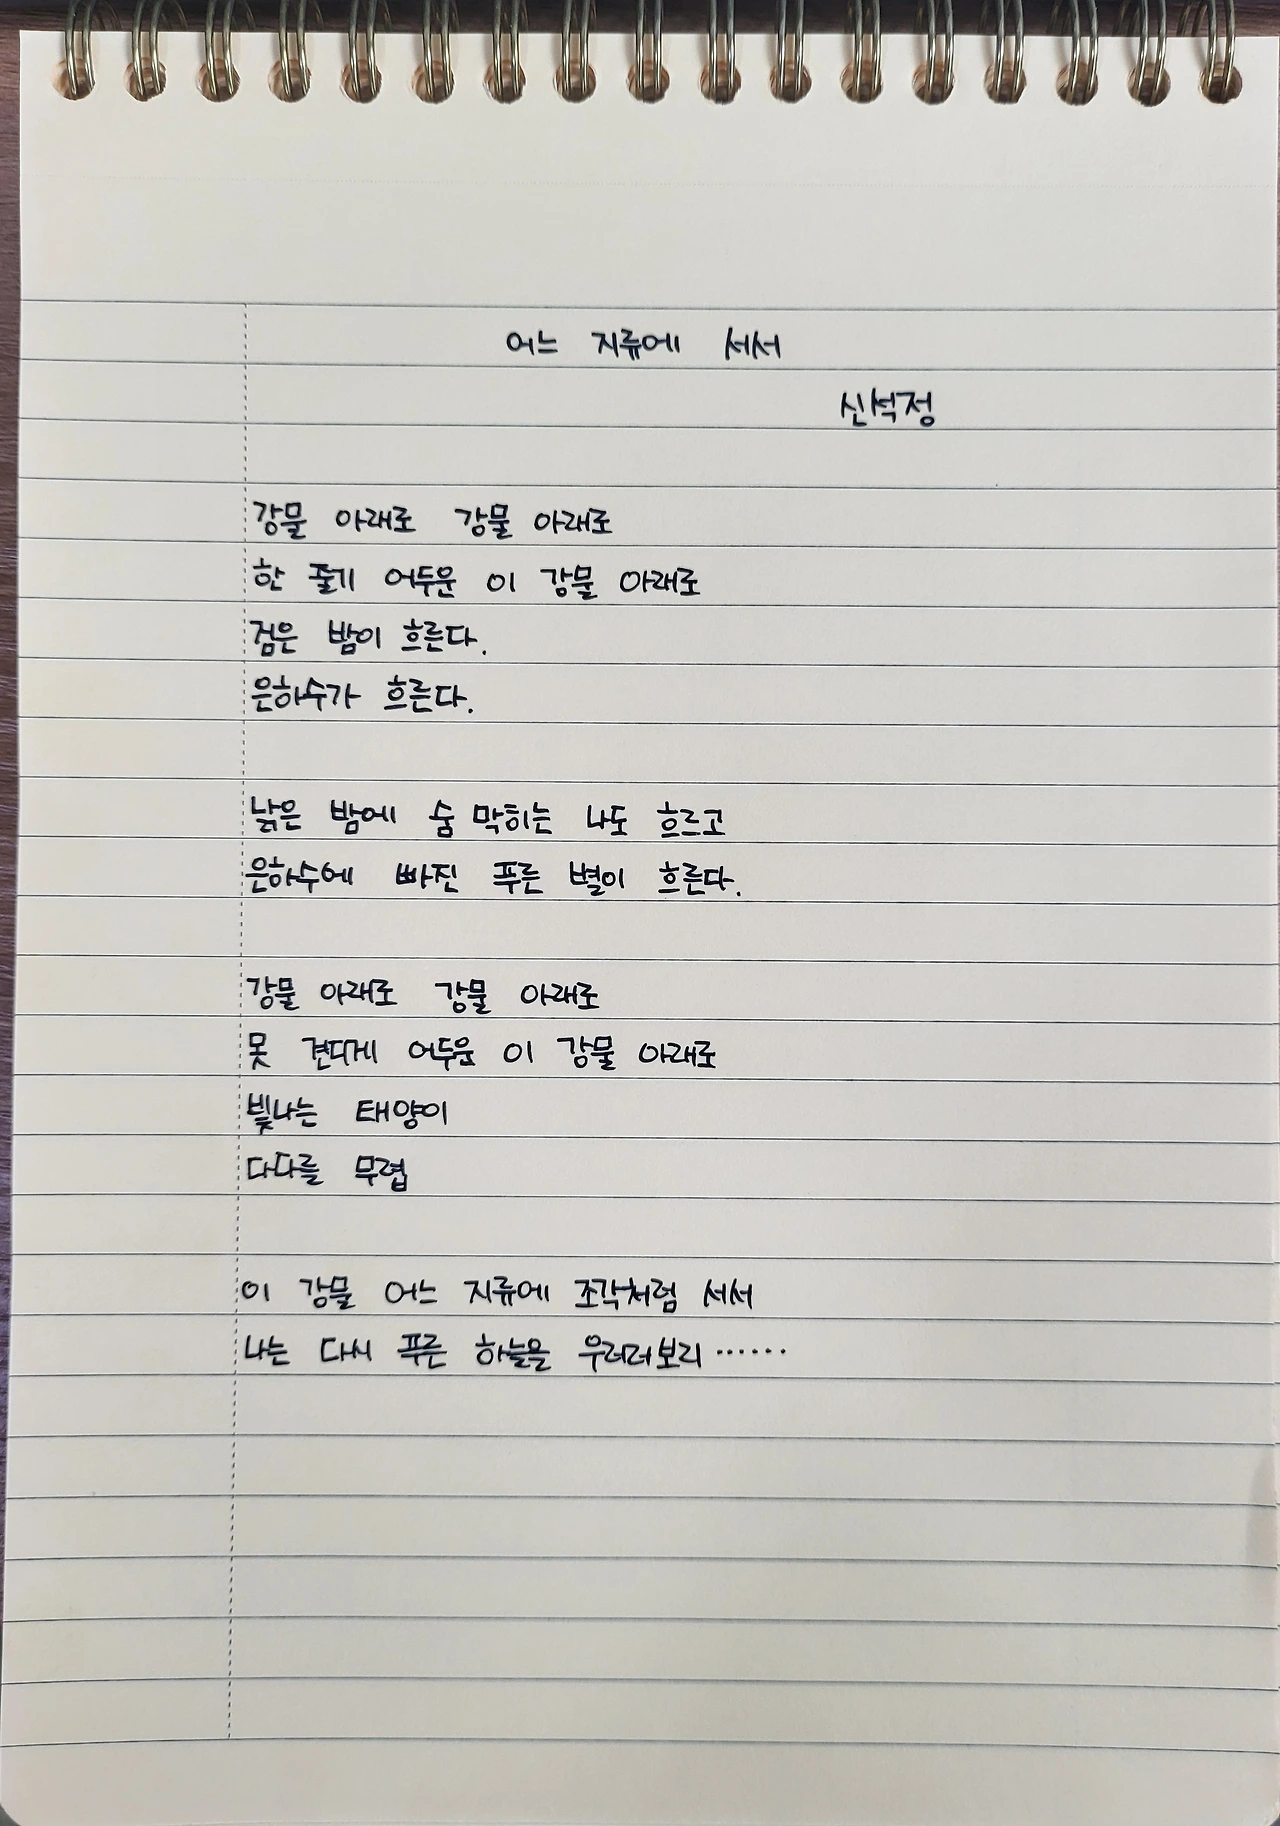 어느 지류에 서서
신석정
강물 아래로 강물 아래로
한 줄기 어두운 이 강물 아래로
검은 밤이 흐른다.
은하수가 흐른다.
낡은 밤에 숨 막히는 나도 흐르고
은하수에 빠진 푸른 별이 흐른다.
강물 아래로 강물 아래로
못 견디게 어두운 이 강물 아래로
빛나는 태양이
다다를 무렵
이 강물 어느 지류에 조각처럼 서서
나는 다시 푸른 하늘을 우러러보리……